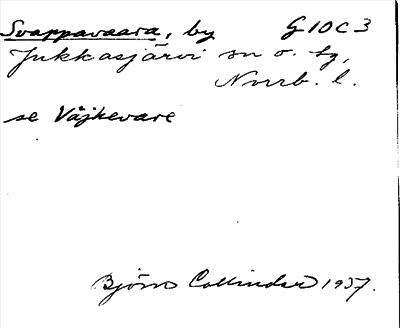 Svappavaara, by G10C3
Jukkasjärvi sn o. tg,
Norrb. l.
se Våjkevare
Björn Collinder 1937.